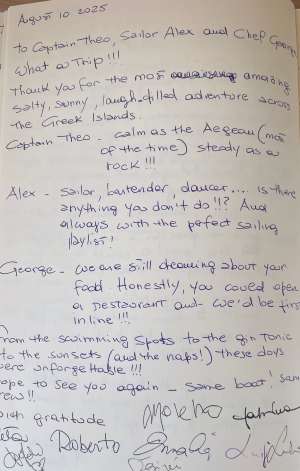 August 10 2025
To Captain Theo, Sailor Alex and Chef George
What a Trip!!!
Thank you for the most amazing
salty, sunny, laugh-filled adventure across
the Greek Islands.
Captain Theo - calm as the Aegean (most
of the time) steady as a
rock!!!
Alex - sailor, bartender, dancer.... is there
anything you don't do!!? And
always with the perfect sailing
playlist!
George - we are still dreaming about your
food Honestly, you could open
a restaurant and we'd be first
in line!!!
From the swimming spots to the gin tonic
to the sunsets (and the naps!) these days
were unforgettable!!!
Hope to see you again - same boat! Same
crew!!
With gratitude
Roberto